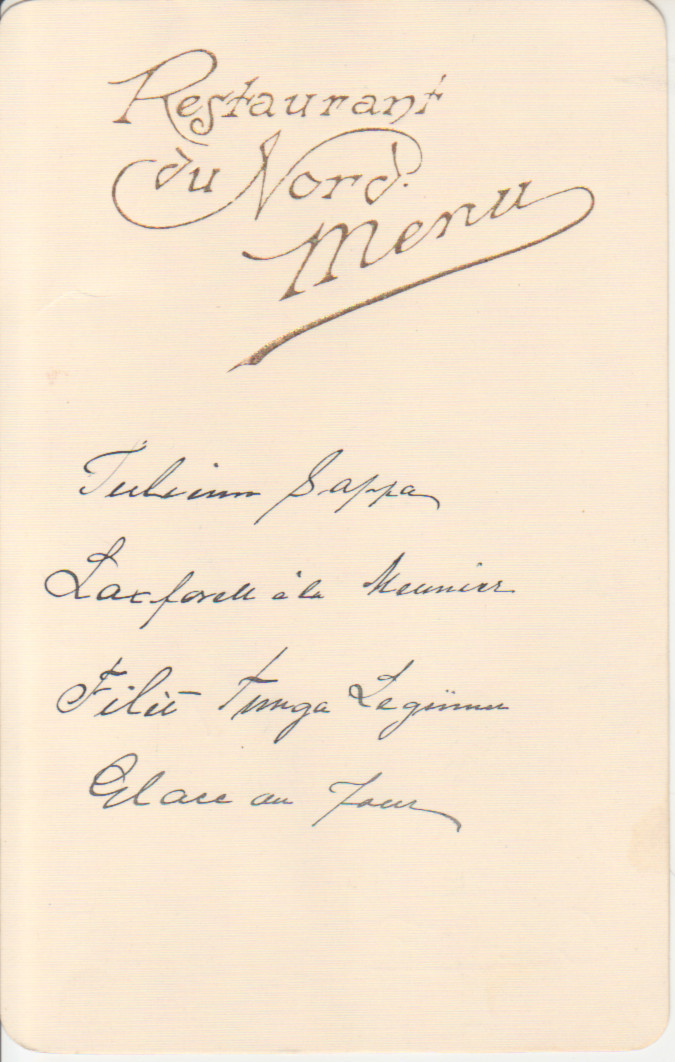 Restaurant
du Nord.
Menu
Julienn Sappa
Laxforell à la Meunier
Filèt Tunga Legümer
Glace au Four